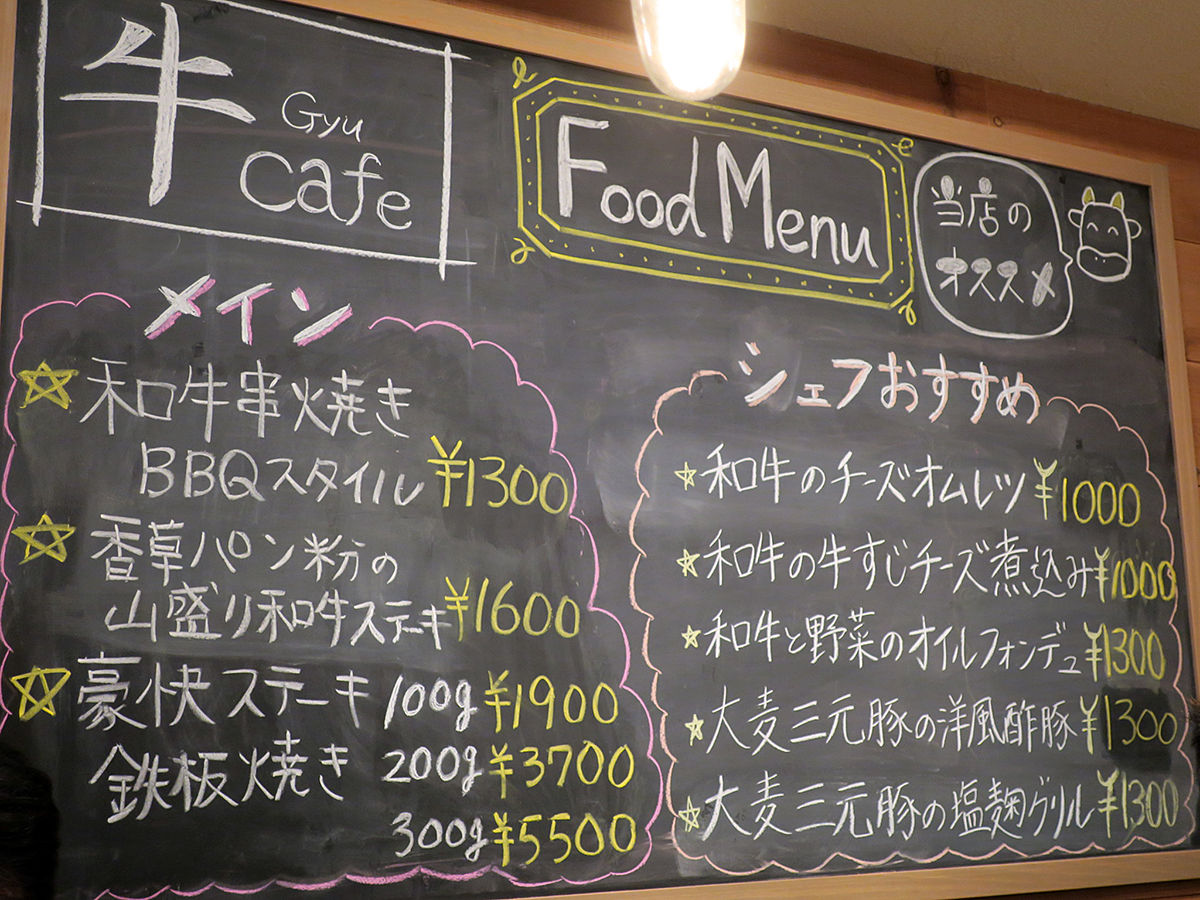 牛
Gyu
cafe
Food Menu
当店の
オススメ
メイン
☆和牛串焼き
BBQスタイル ¥1300
☆香草パン粉の
山盛り和牛ステーキ ¥1600
☆豪快ステーキ 100g ¥1900
鉄板焼き 200g ¥3700
300g ¥5500
シェフおすすめ
☆和牛のチーズオムレツ ¥1000
☆和牛の牛すじチーズ煮込み ¥1000
☆和牛と野菜のオイルフォンデュ ¥1300
☆大麦三元豚の洋風酢豚 ¥1300
☆大麦三元豚の塩麹グリル ¥1300